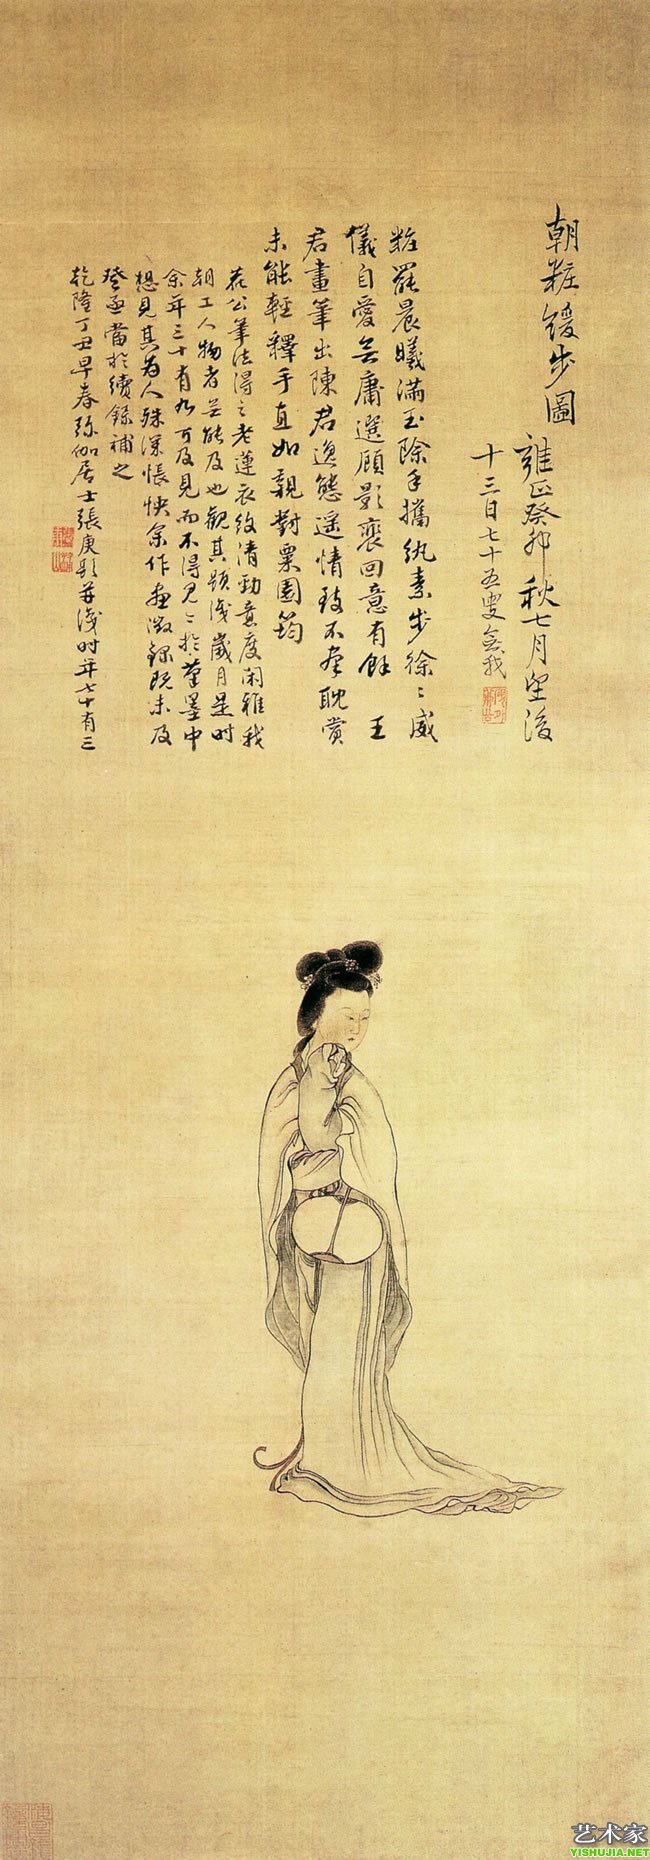 朝粧緩步圖
雍正癸卯秋七月望後
十三日七十五叟無我
粧罷晨曦滿玉除手攜紈素步徐〻威
儀自愛無庸選顧影裵回意有餘 王
君畫筆出陳君逸態遥情致不羣耽賞
未能輕釋手直如親對粟園筠
公筆法得之老蓮衣紋清勁意度闲雅我
朝工人物者無能及也觀其題識歲月是时
余年三十有九可及見而不得見〻於筆墨中
想見其为人殊深悵怏余作畫徵錄既未及
登函當於續錄補之
乾隆丁丑早春弥伽居士張庚題并識时年七十有三
艺术家
YISHUJIA.NET